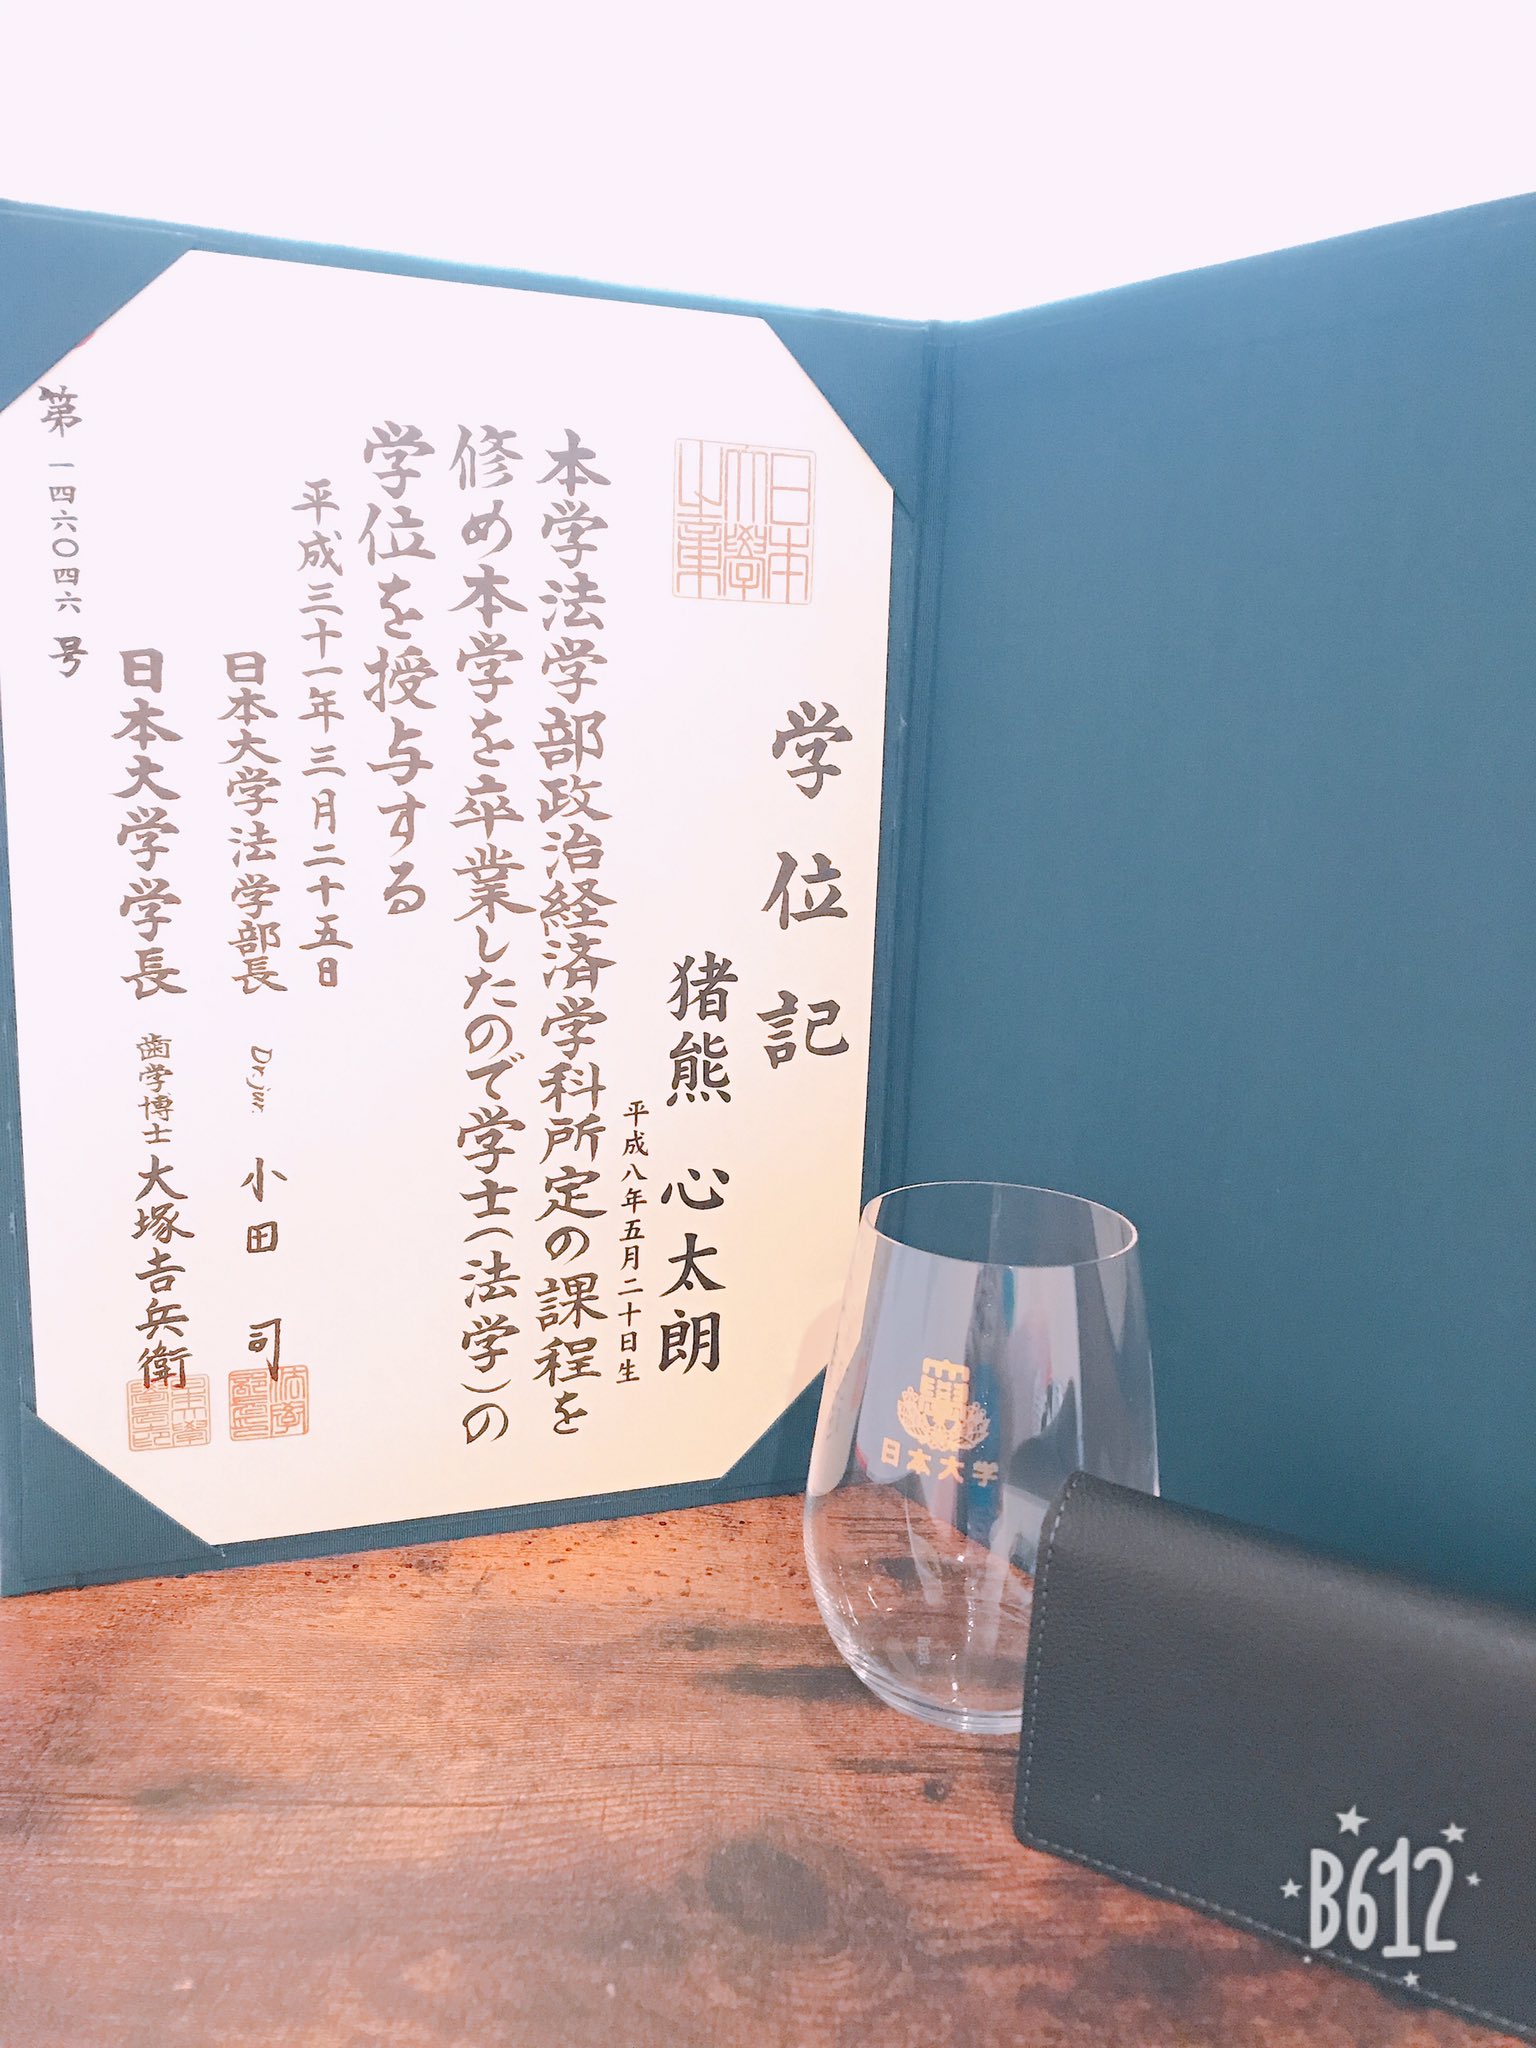 学位記
日本大學之章
猪熊 心太朗
平成八年五月二十日生
本学法学部政治経済学科所定の課程を
修め本学を卒業したので学士(法学)の
学位を授与する
平成三十一年三月二十五日
日本大学法学部長 Dr.jur. 小田 司
日本大学学長 歯学博士 大塚𠮷兵衛
第一四六〇四六号
日本大学
B612